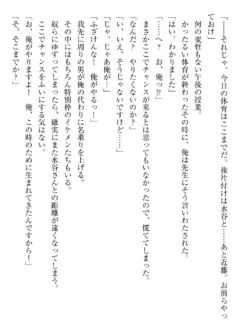 「――それじゃ、今日の体育はここまでだ。後片付けは水谷と……あと近藤。お前らやっ
ておけ」
何の変哲もない午後の授業。
かったるい体育が終わったその時に、俺は先生にそう言いわたされた。
「はい。わかりました」
「……へ？　お、俺っ？
「なんだ？　やりたくないのか？」
「い、いえ、そうじゃないですけど……」
まさかここでチャンスが巡ってきたなんて思わなかったので、慌ててしまった。
「じゃ、じゃあ俺が！」
「ふざけんな！　俺がするんだ！」
俺の周りの男が代わりに名乗りを上げる。
その中にはもちろん特別枠のイケメンたちもいる。
奴らにゆずってしまったら、確実にまた水谷さんとの距離が遠くなってしまう。
ここでチャンスをふいにする気はない。
「お、俺がやりますよ！　俺、この時のために生まれてきたんですから！」
「そ、そこまでか……